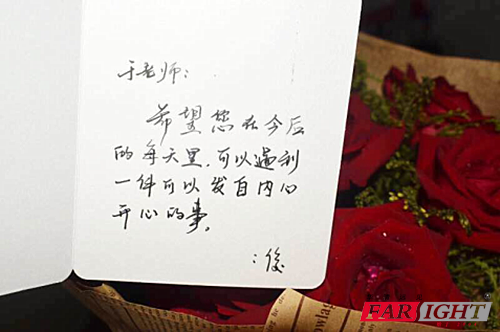 于老师：
希望您在今后
的每天里，可以遇到
一件可以发自内心
开心的事。
：俊
FARSIGHT